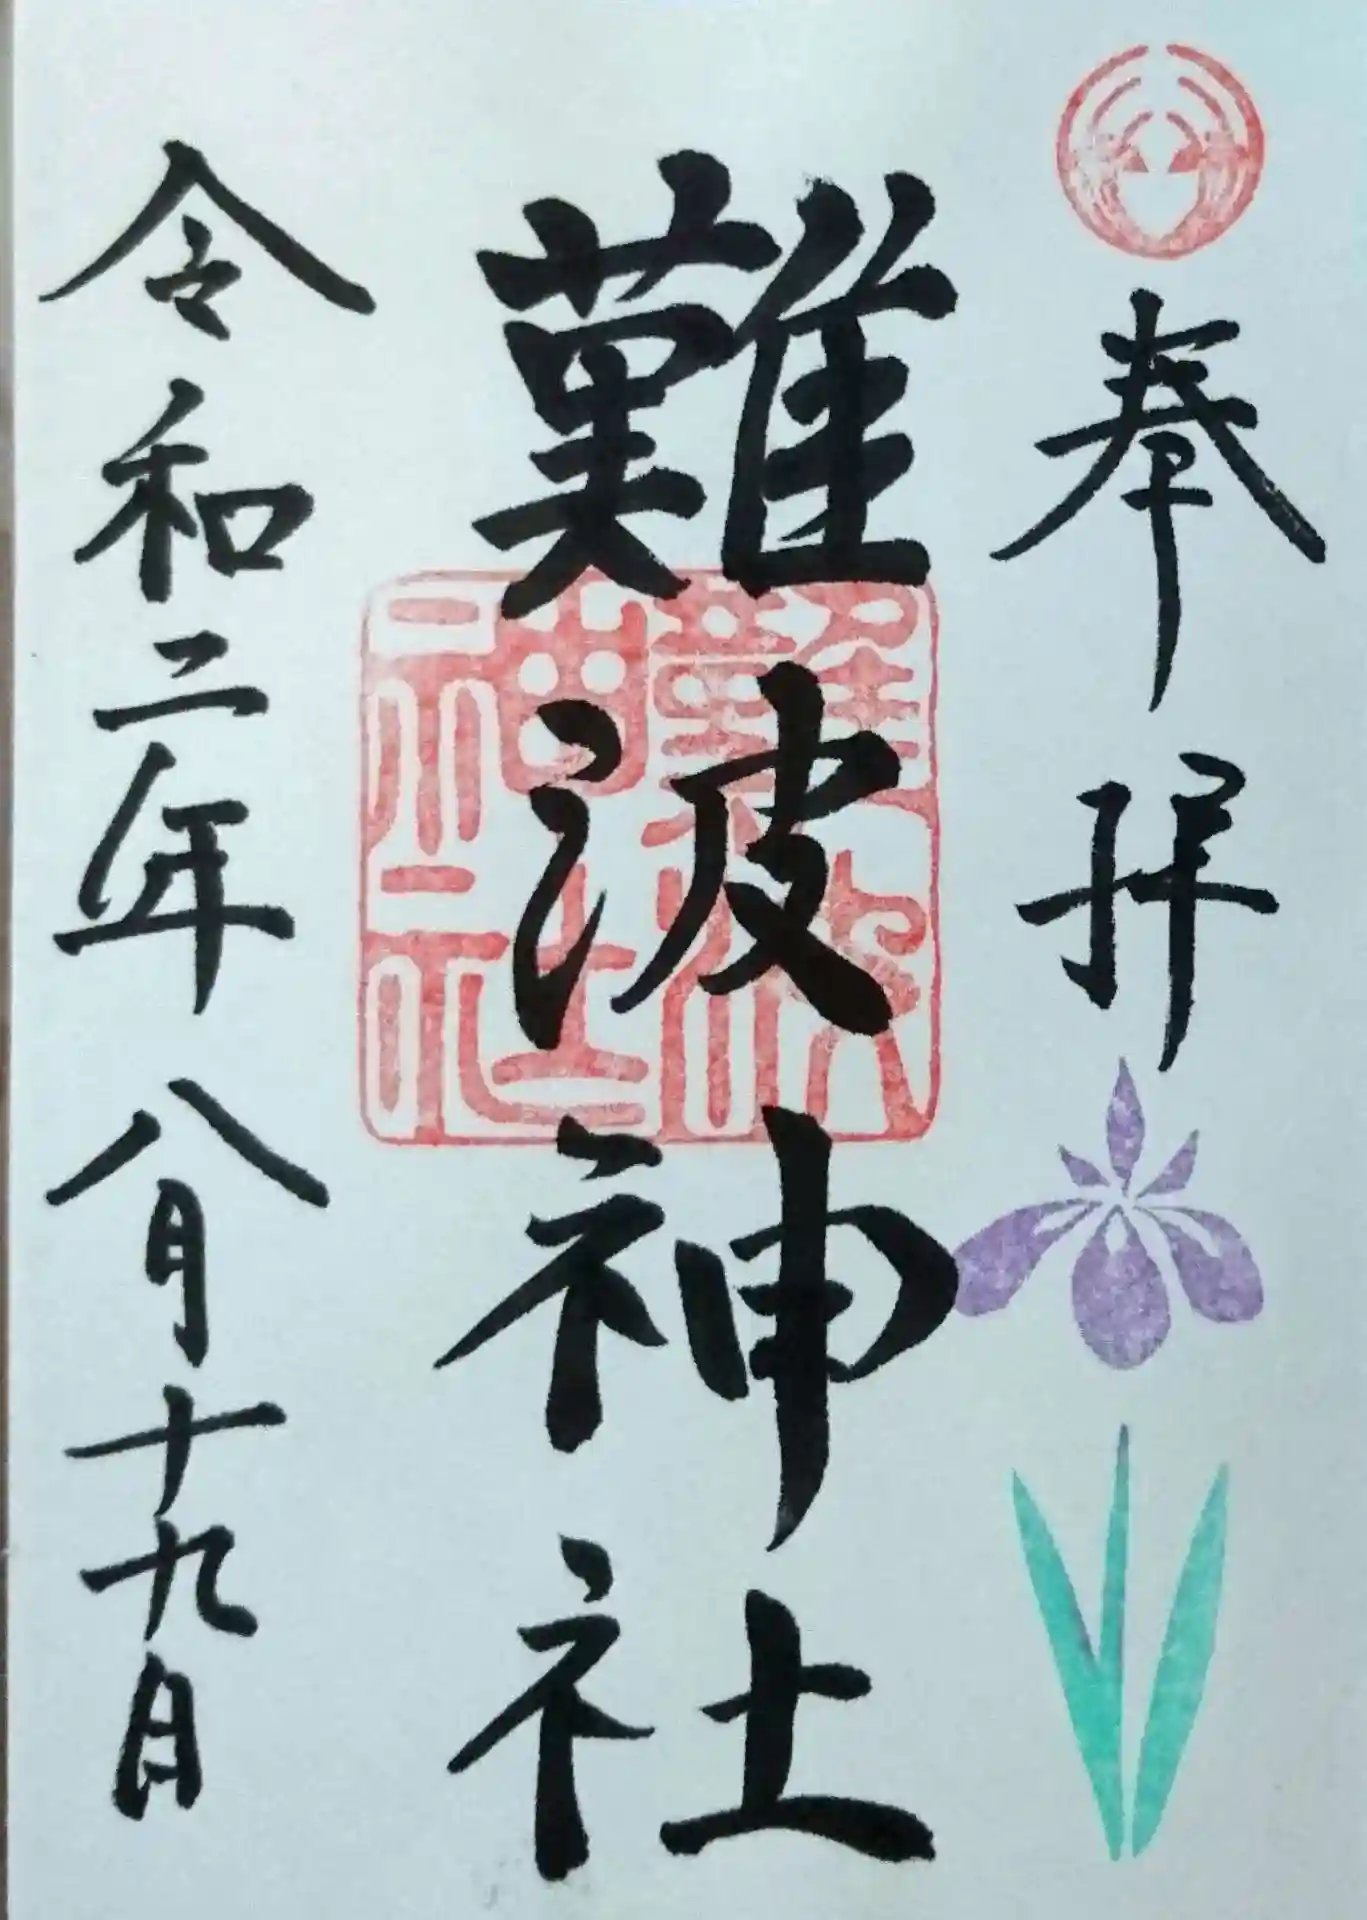 奉拝
難波神社
難波神社
令和二年八月十九日